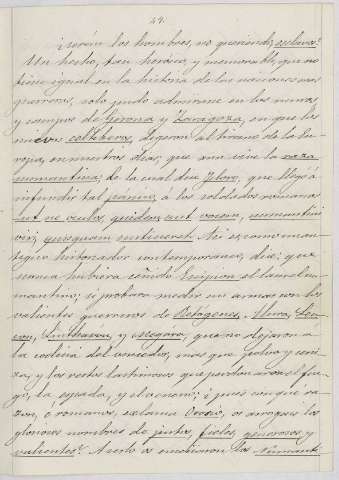 24.
¿serán los hombres, no queriendo, esclavos?
Un hecho, tan heróico, y memorable, que no
tiene igual en la historia de las naciones mas
guerreras, solo pudo admirarse en los muros,
y campos de Gerona y Zaragoza, en que los
nuevos celtíberos, digeron al tirano de la Eu-
ropa, en nuestros dias; que aun vive la raza
numantina; de la cual dice Floro, que llegó á
infundir tal panico, á los soldados romanos
ut ne oculos, quidem, aut vocem, numantini
viri, quisquam sustineret. Asi es como
historiador contemporaneo, dice; que
nunca hubiera ceñido Escipion el laurel nu-
mantino; si probara medir sus armas con los
valientes guerreros de Retógenes,
y Megára, que no dejaron á
la codicia del vencedor, mas que polvo y ceni-
za, y los restos lastimosos que perdonáron el fue-
go, la espada, y el veneno; ¿pues con qué ra-
zon, ó romanos, exclama Orosio, os arrogais los
gloriosos nombres de justos, fieles, generosos y
valientes? A esto os enseñaron los Numanti-